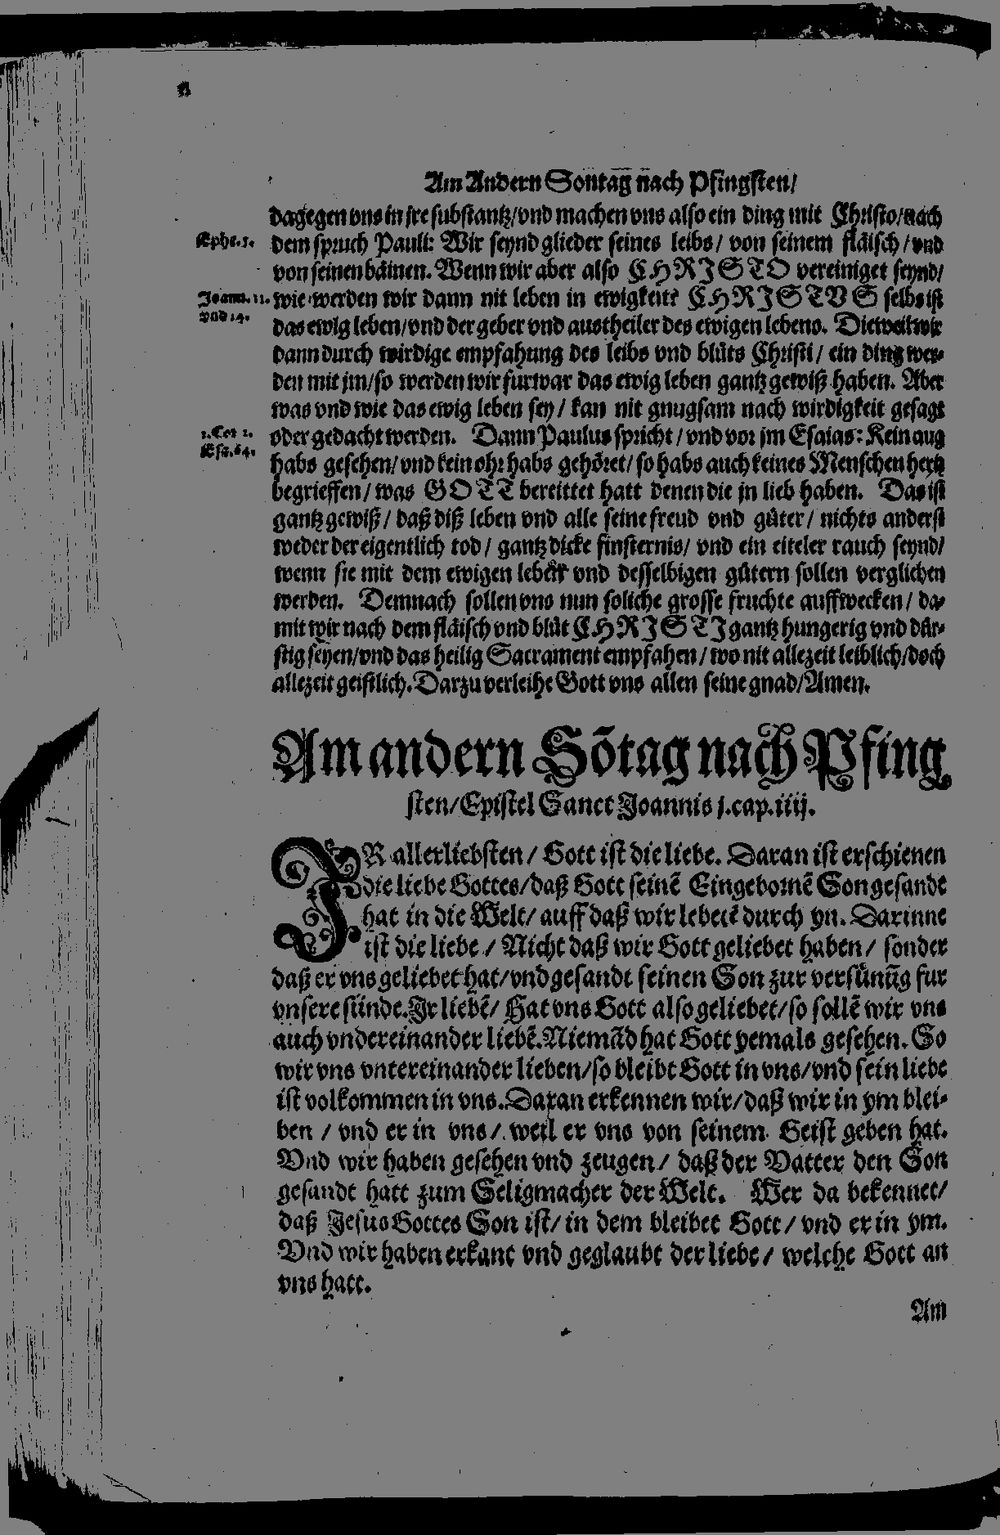 Am Andern Sontag nach Pfingsten/
dagegen vns in jre substantz/vnd machen vns also ein ding mit Christo/nach
Ephe. 5.
dem spruch Pauli: Wir seynd glieder seines leibs/ von seinem fläisch/vnd
von seinen bäinen. Wenn wir aber also CHRISTO vereiniget seynd/
Joann. 11.
wie werden wir dann nit leben in ewigkeit? CHRISTVS selbs ist
vnd 14.
das ewig leben/vnd der geber vnd austheiler des ewigen lebens. Dieweil wir
dann durch wirdige empfahung des leibs vnd blůts Christi/ ein ding wer-
den mit jm/so werden wir furwar das ewig leben gantz gewiß haben. Aber
was vnd wie das ewig leben sey/ kan nit gnugsam nach wirdigkeit gesagt
1. Cor 2.
oder gedacht werden. Dann Paulus spricht/vnd vor jm Esaias: Kein aug
Esa. 64.
habs gesehen/vnd kein ohr habs gehöret/so habs auch keines Menschen hertz
begrieffen/ was GOTT bereittet hatt denen die jn lieb haben. Das ist
gantz gewiß/ daß diß leben vnd alle seine freud vnd güter/ nichts anderst
weder der eigentlich tod/ gantz dicke finsternis/ vnd ein eiteler rauch seynd/
wenn sie mit dem ewigen leben vnd desselbigen gütern sollen verglichen
werden. Demnach sollen vns nun soliche grosse fruchte auffwecken/ da-
mit wir nach dem fläisch vnd blůt CHRISTI gantz hungerig vnd dür-
stig seyen/vnd das heilig Sacrament empfahen/ wo nit allezeit leiblich/doch
allezeit geistlich. Darzu verleihe Gott vns allen seine gnad/Amen.
Am andern Sõtag nach Pfing
sten/Epistel Sanct Joannis j.cap.iiij.
IR allerliebsten/ Gott ist die liebe. Daran ist erschienen
die liebe Gottes/daß Gott seinẽ Eingebornẽ Son gesandt
hat in die Welt/ auff daß wir lebetẽ durch yn. Darinne
ist die liebe/ Nicht daß wir Gott geliebet haben/ sonder
daß er vns geliebet hat/vnd gesandt seinen Son zur versünũg fur
vnsere sünde. Ir liebẽ/ Hat vns Gott also geliebet/so sollẽ wir vns
auch vndereinander liebẽ. Niemãd hat Gott yemals gesehen. So
wir vns vntereinander lieben/so bleibt Gott in vns/vnd sein liebe
ist volkommen in vns. Daran erkennen wir/daß wir in ym blei-
ben/ vnd er in vns/ weil er vns von seinem Geist geben hat.
Vnd wir haben gesehen vnd zeugen/ daß der Vatter den Son
gesandt hatt zum Seligmacher der Welt. Wer da bekennet/
daß Jesus Gottes Son ist/ in dem bleibet Gott/ vnd er in ym.
Vnd wir haben erkant vnd geglaubt der liebe/ welche Gott an
vns hatt.
Am